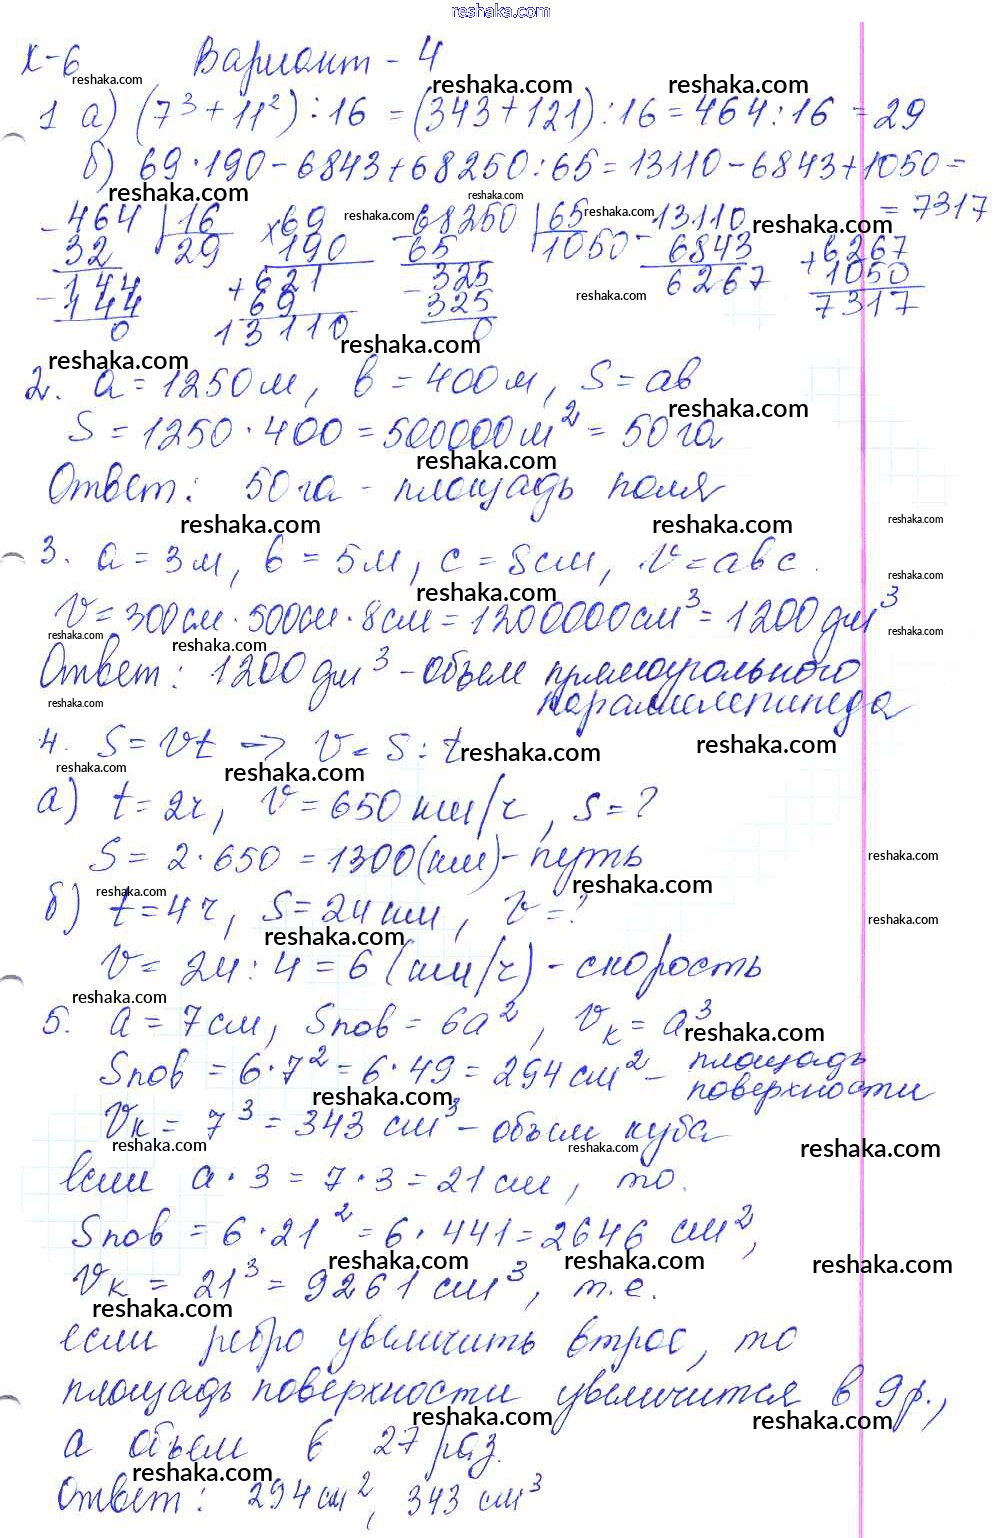 reshaka.com
К-6 Вариант - 4
1 а) (7³ + 11²) : 16 = (343 + 121) : 16 = 464 : 16 = 29
б) 69 · 190 - 6843 + 68250 : 65 = 13110 - 6843 + 1050 =
= 7317
- 464 | 16
32 29
- 144
144
0
× 69
190
+ 621
69
13110
- 68250 | 65
65 1050
- 325
325
0
- 13110
6843
6267
+ 6267
1050
7317
2. a = 1250 м, b = 400 м, S = ab
S = 1250 · 400 = 500000 м² = 50 га
Ответ: 50 га - площадь поля
3. a = 3 м, b = 5 м, c = 8 см, V = abc.
V = 300 см · 500 см · 8 см = 1200000 см³ = 1200 дм³
Ответ: 1200 дм³ - объем прямоугольного
параллелепипеда
4. S = Vt -> V = S : t
а) t = 2ч, V = 650 км/ч, S = ?
S = 2 · 650 = 1300 (км) - путь
б) t = 4ч, S = 24 км, V = ?
V = 24 : 4 = 6 (км/ч) - скорость
5. a = 7 см, Sпов = 6a², Vк = a³
Sпов = 6 · 7² = 6 · 49 = 294 см² - площадь
поверхности
Vк = 7³ = 343 см³ - объем куба
если a · 3 = 7 · 3 = 21 см, то.
Sпов = 6 · 21² = 6 · 441 = 2646 см²,
Vк = 21³ = 9261 см³, т.е.
если ребро увеличить втрое, то
площадь поверхности увеличится в 9 р.,
а объем в 27 раз.
Ответ: 294 см², 343 см³